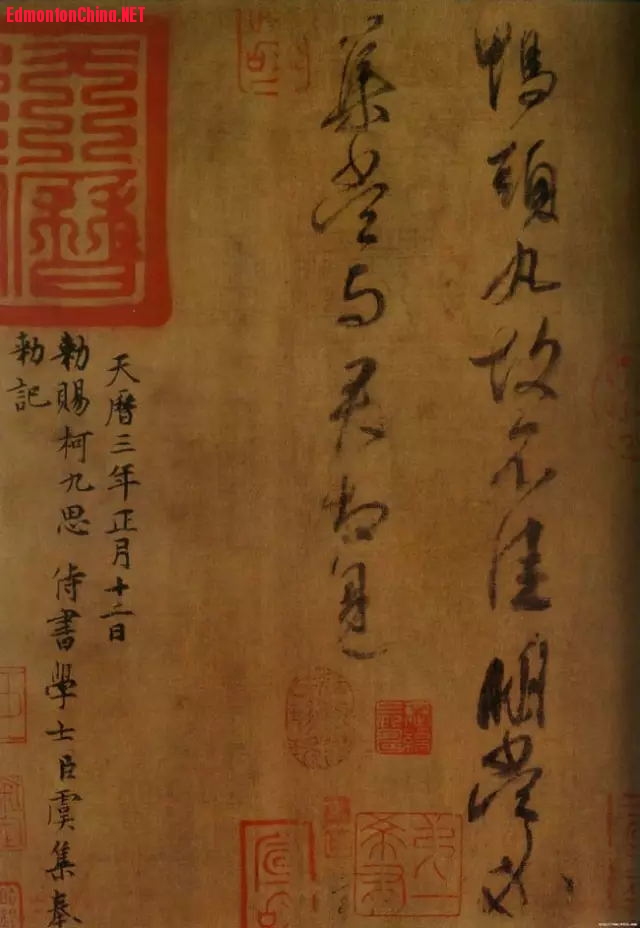 EdmontonChina.NET
鴨頭丸故不佳明當必
集當与君相見
天曆三年正月十二日
勑賜柯九思 侍書學士臣虞集奉
勑記